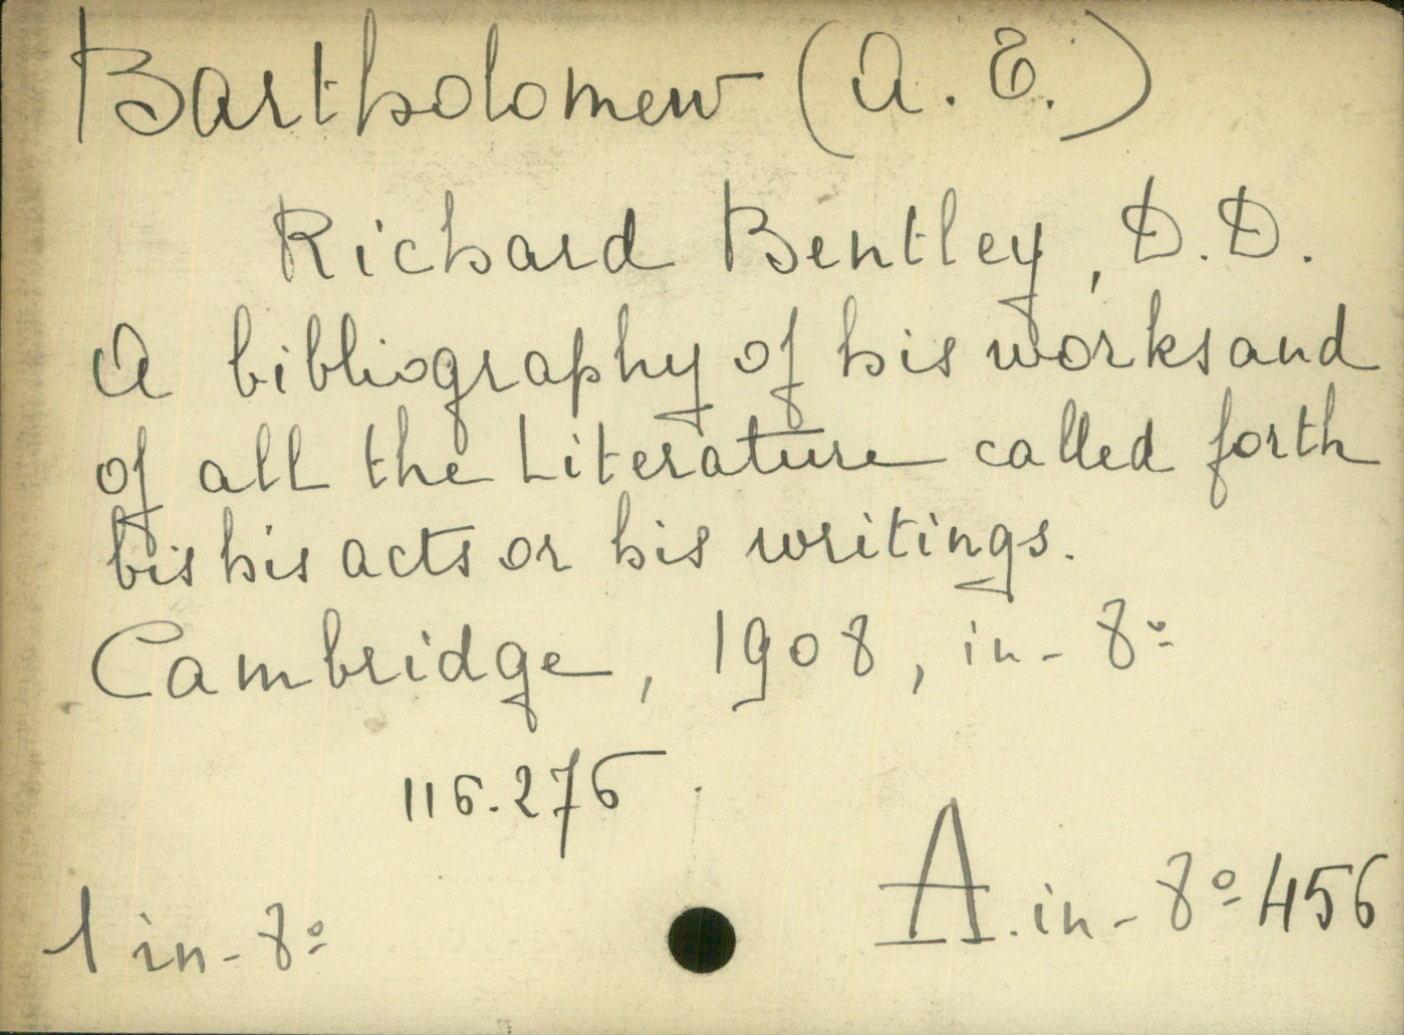 Bartholomew (A. E.)
Richard Bentley, D.D.
A bibliography of his works and
of all the Literature called forth
bis his acts or his writings.
Cambridge, 1908, in-8º
116.276.
A. in-8º 456
1 in-8º